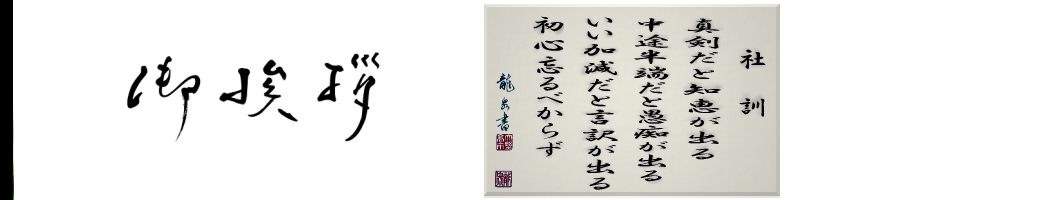 御挨拶
社訓
真剣だと知恵が出る
中途半端だと愚痴が出る
いい加減だと言訳が出る
初心忘るべからず
龍玄書